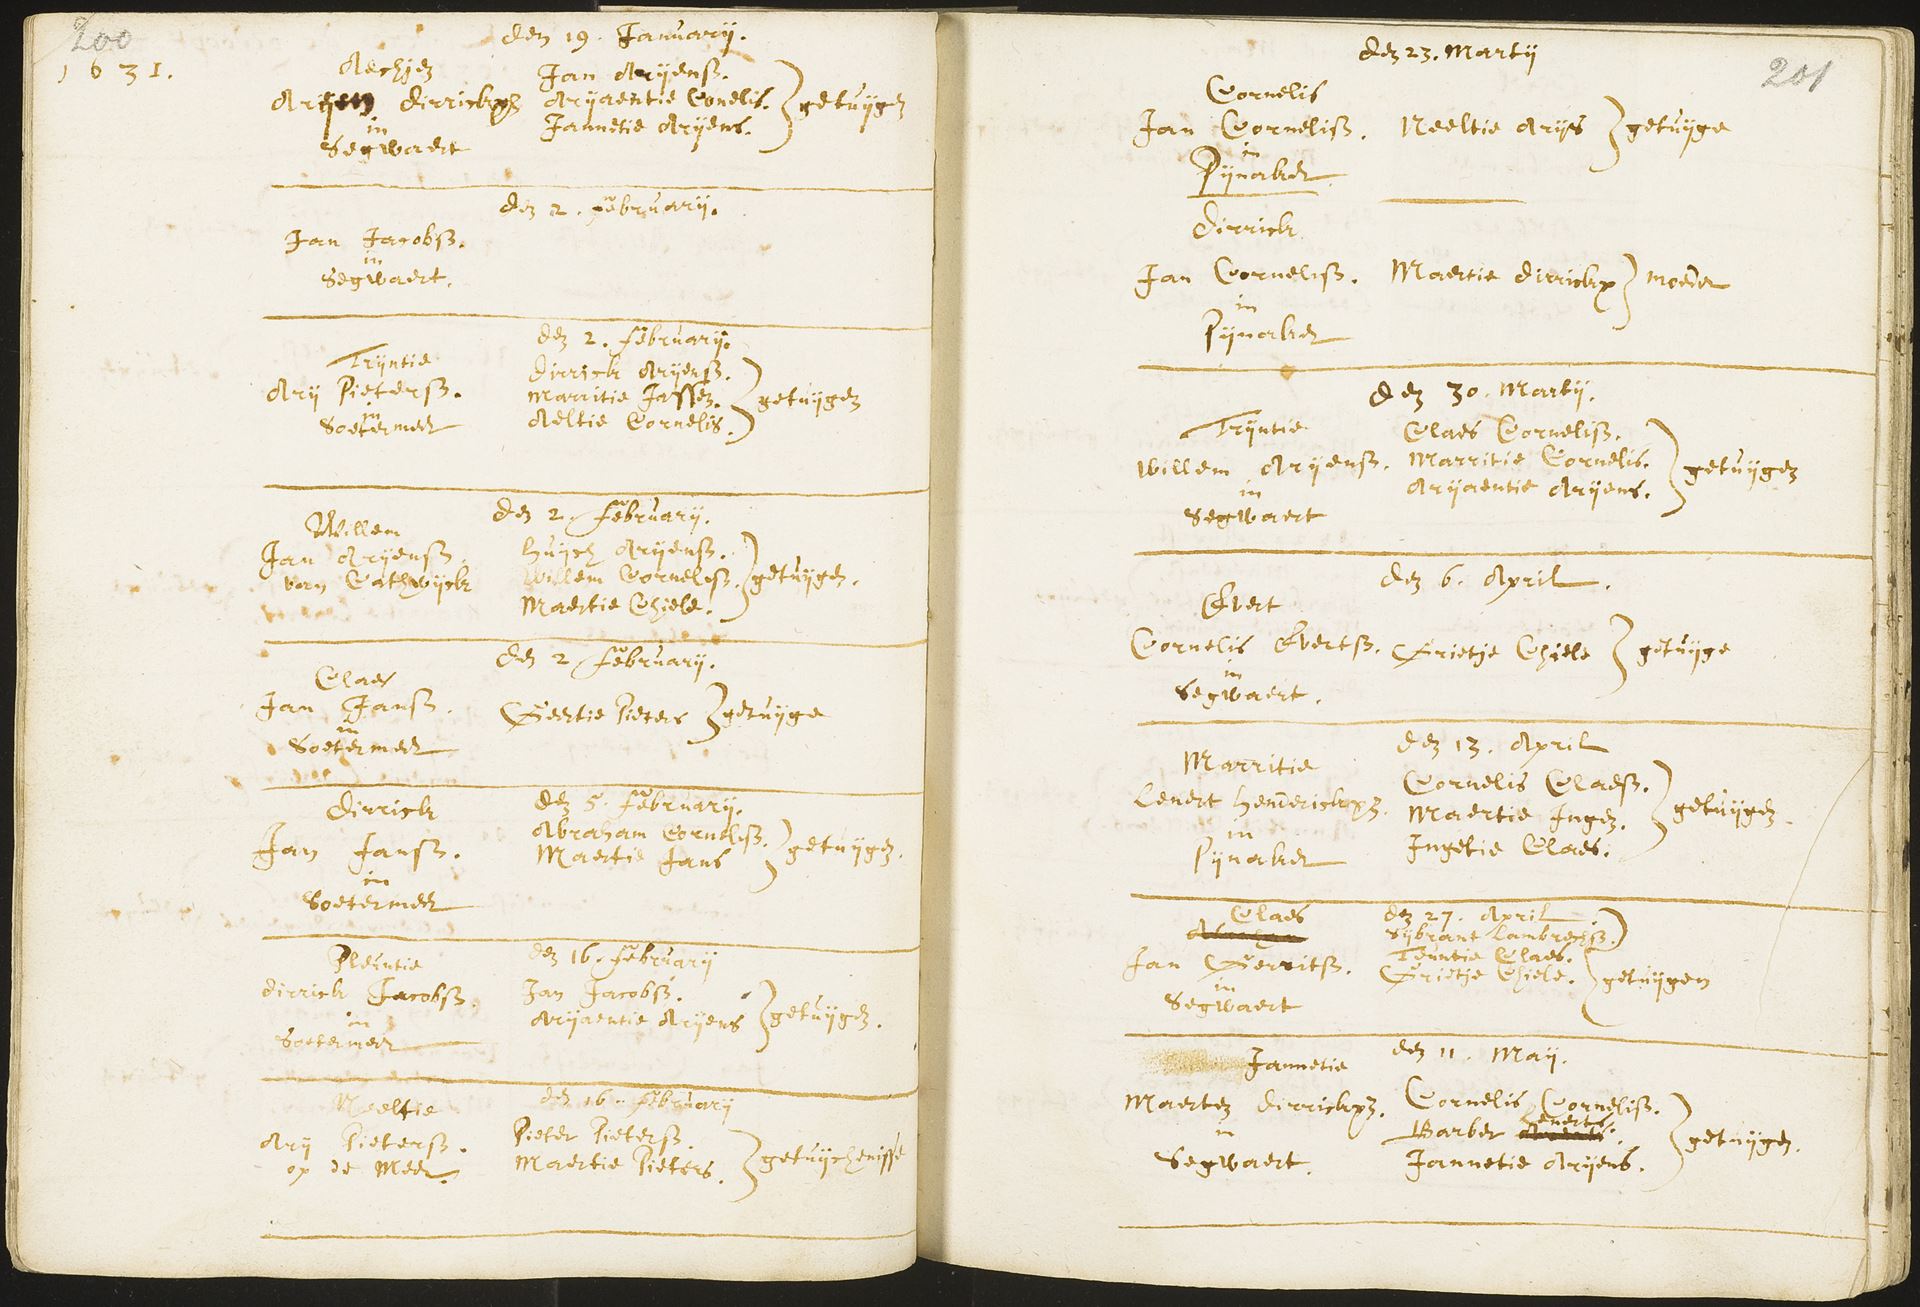 200
1631.
den 19. Januarij.
Aechjen
Arijen dirrickxz
in
Segwaert
Jan Arijensz.
Arijaentie Cornelis.
Jannetie Arijens.
getuijgen
den 2. februarij.
Jan Jacobsz.
in
Segwaert.
den 2. februarij.
Trijntie
Arij Pietersz.
in
Soetermeer
dirrick Arijensz.
Marritie Jassen.
Aeltie Cornelis.
getuijgen
den 2. februarij.
Willem
Jan Arijensz.
van Cathwijck
huijch Arijensz.
Willem Cornelisz.
Maertie Chiele.
getuijgen.
den 2. februarij.
Claes
Jan Jansz.
in
Soetermeer
Geertie Pieters
getuijge
den 5. februarij.
dirrick
Jan Jansz.
in
Soetermeer
Abraham Cornelisz.
Maertie Jans
getuijgen.
den 16. februarij
Pleuntie
dirrick Jacobsz.
in
Soetermeer
Jan Jacobsz.
Arijaentie Arijens
getuijgen.
den 16. februarij
Neeltie
Arij Pietersz.
op de Meer.
Pieter Pietersz.
Maertie Pieters.
getuijchenisse
201
den 23. Martij
Cornelis
Jan Cornelisz.
in
Pijnaker.
Neeltie Arijs
getuijge
dirrick
Jan Cornelisz.
in
Pijnaker
Maertie dirrickx
moeder
den 30. Martij.
Trijntie
Willem Arijensz.
in
Segwaert
Claes Cornelisz.
Marritie Cornelis.
Arijaentie Arijens.
getuijgen
den 6. April.
Evert
Cornelis Evertsz.
in
Segwaert.
Grietje Chiele
getuijge
den 13. April
Marritie
Lenert henderickxz.
in
Pijnaker
Cornelis Claesz.
Maertie Ingen.
Ingetie Claes.
getuijgen
den 27. April
Claes
Jan Gerritsz.
in
Segwaert
Sijbrant Lambrechsz.
Teuntie Claes.
Grietje Chiele.
getuijgen
den 11. Maij.
Jannetie
Maerten dirrickxz.
in
Segwaert.
Cornelis Cornelisz.
Barber Lenerts.
Jannetie Arijens.
getuijgen.